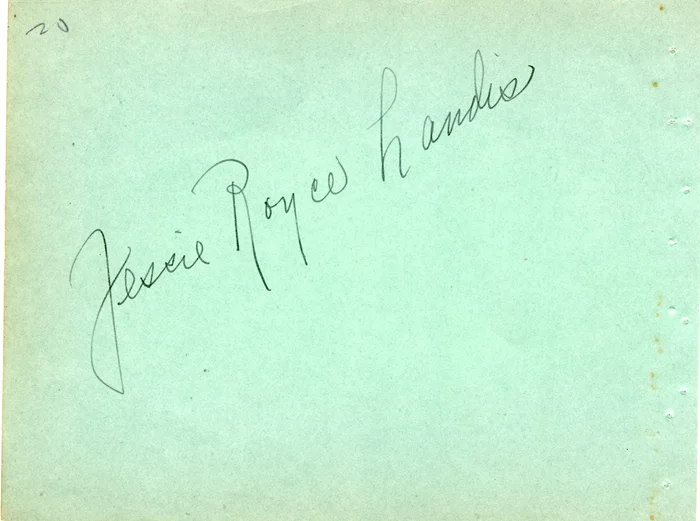 20
Jessie Royce Landis